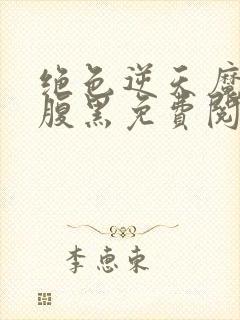 绝色逆天魔
腹黑免费阅
李惠东